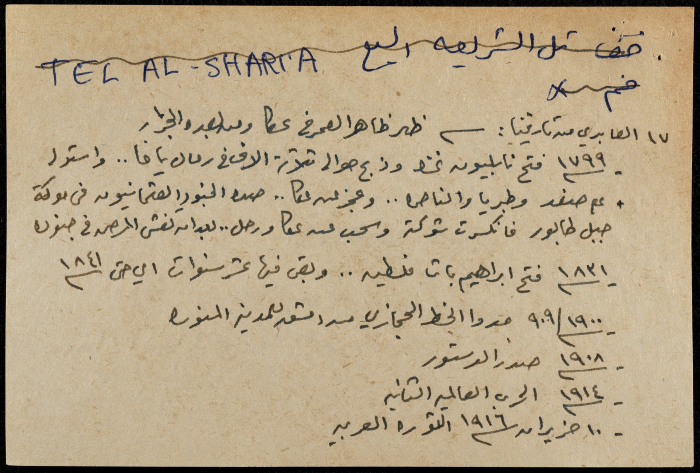 تل الشريعه TEL AL-SHARI'A
١٧ العابدي من تاريخنا : ظهر ظاهر العمر في عكا ومن بعده الجزار
- ١٧٩٩ فتح نابليون غزه وذبح حوالي ثلاثة الاف في رمال يافا .. واستولى
على صفد وطبريا والناصره .. وعجز عن عكا .. صده الجنود العثمانيون في موكة
جبل طابور فانكسرت شوكته وانسحب عن عكا ورحل .. بعد ان تفشى المرض في جنوده
- ١٨٣١ فتح ابراهيم باشا فلسطين .. وبقي فيها عشر سنوات اي حتى ١٨٤١
- ١٩٠٠/٩٠٩ مدوا الخط الحجازي من دمشق للمدينه المنوره
- ١٩٠٨ صدر الدستور
- ١٩١٤ الحرب العالميه الثانيه
- ١٠ حزيران ١٩١٦ الثوره العربيه